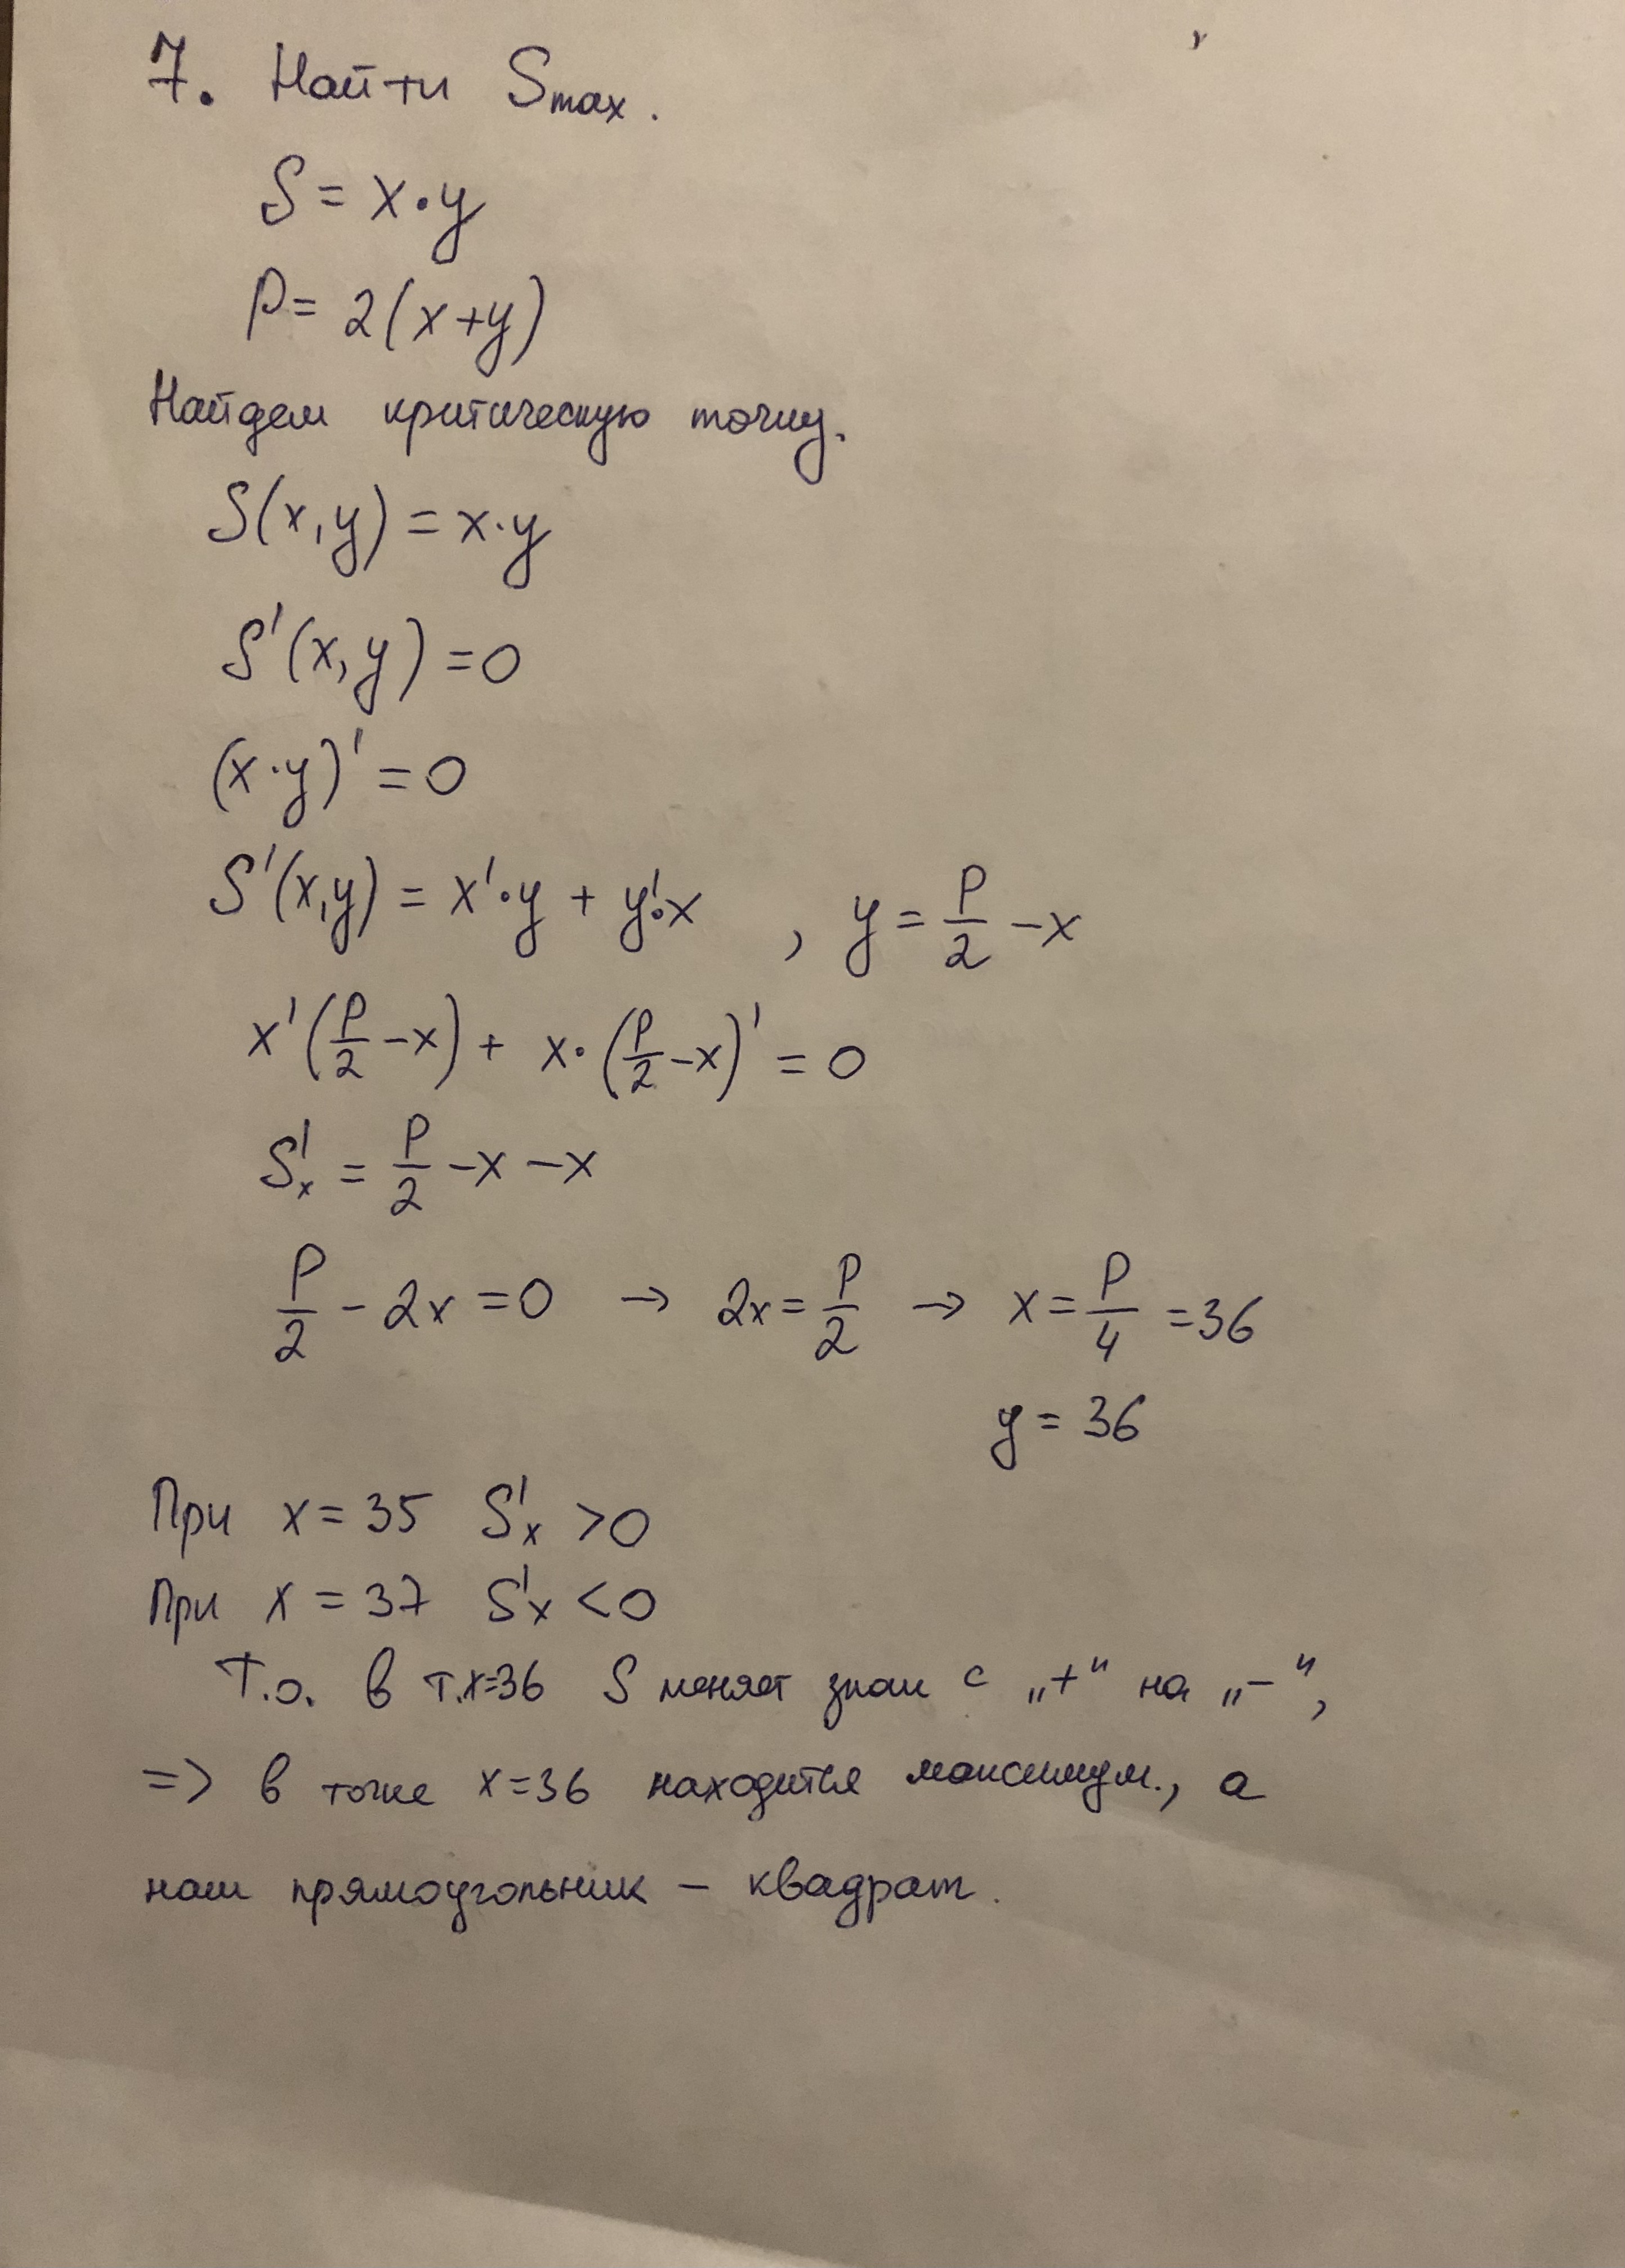 7. Найти Smax.
S = x·y
P = 2(x+y)
Найдем критическую точку.
S(x,y) = x·y
S'(x,y) = 0
(x·y)' = 0
S'(x,y) = x'·y + y'·x , y = P/2 - x
x'(P/2 - x) + x·(P/2 - x)' = 0
S'x = P/2 - x - x
P/2 - 2x = 0 → 2x = P/2 → x = P/4 = 36
y = 36
При x = 35 S'x > 0
При x = 37 S'x < 0
Т.о. в т.x=36 S меняет знак с „+" на „-",
=> в точке x=36 находится максимум., а
наш прямоугольник – квадрат.